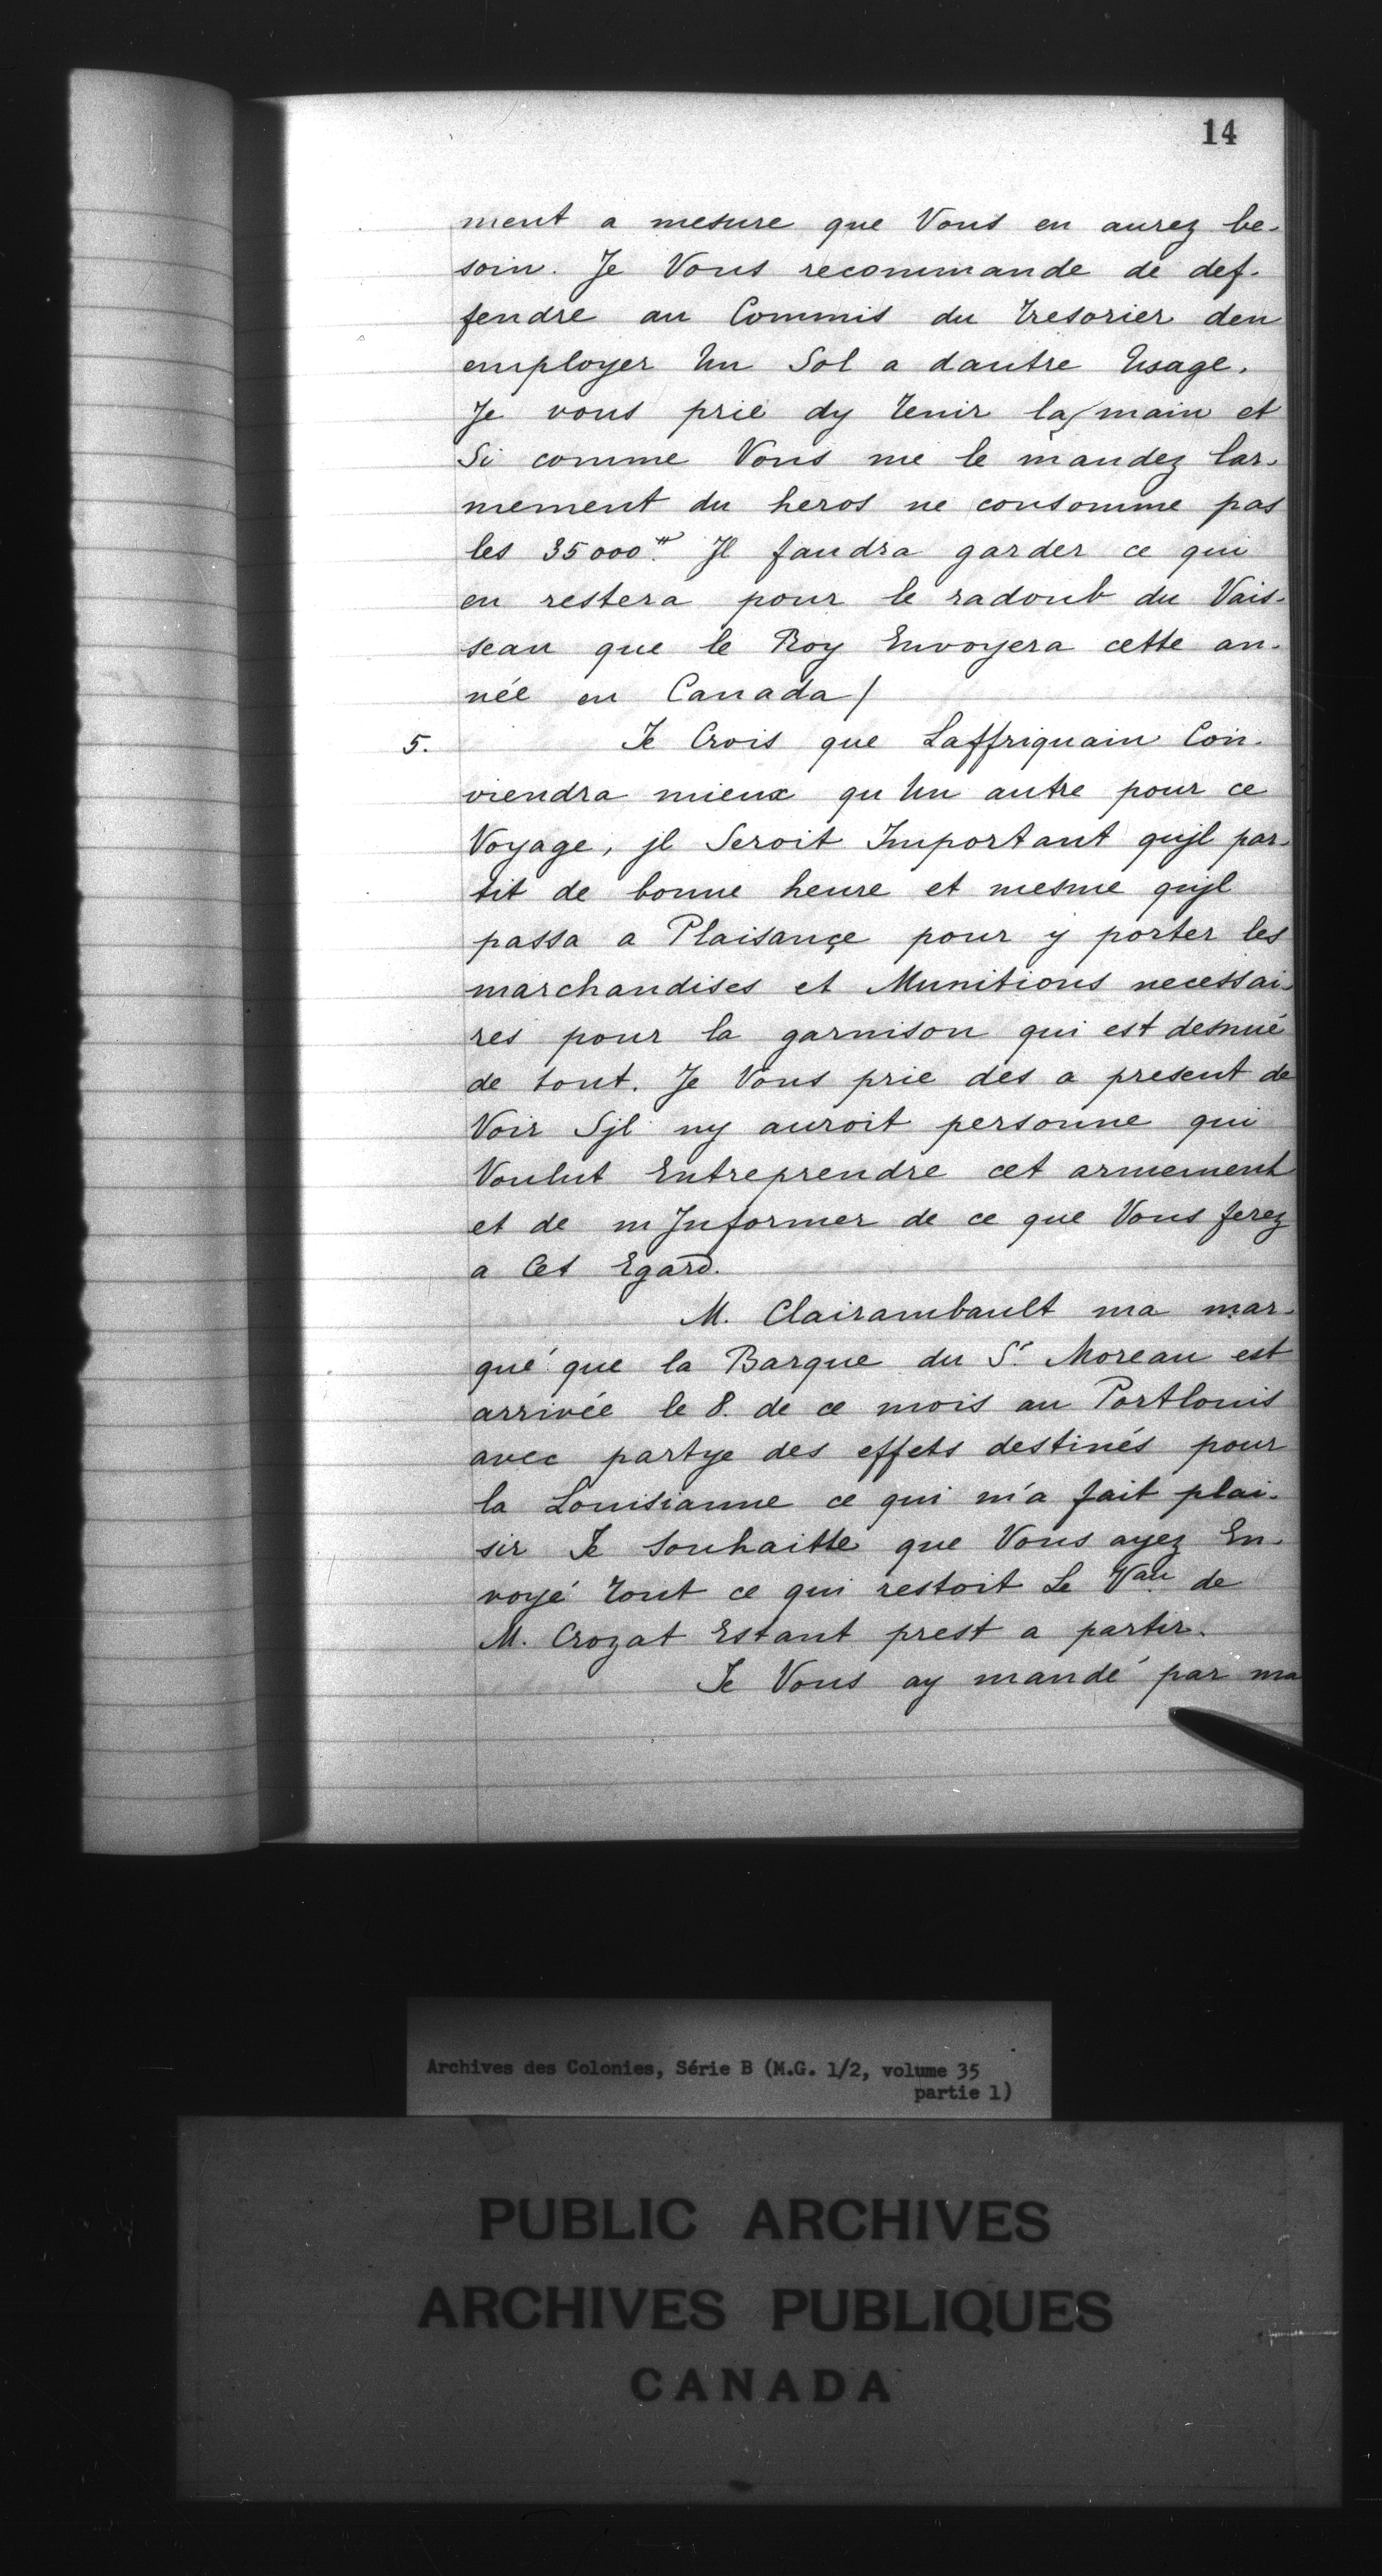 14
ment a mesure que Vous en aurez be-
soin. Je Vous recommande de def-
fendre au Commis du Tresorier den
employer Un Sol a dautre Usage.
Je vous prie dy Tenir la main et
Si comme Vous me le mandez lar-
mement du heros ne consomme pas
les 35000ᵗᵗ. Jl faudra garder ce qui
en restera pour le radoub du Vais-
seau que le Roy Envoyera cette an-
née en Canada/
5. Je Crois que Laffriquain Con-
viendra mieux qu Un autre pour ce
Voyage, jl Seroit Important qujl par-
tit de bonne heure et mesme qujl
passa a Plaisançe pour y porter les
marchandises et Munitions necessai-
res pour la garnison qui est desnué
de tout. Je Vous prie des a present de
Voir Sjl ny auroit personne qui
Voulut Entreprendre cet armement
et de m Jnformer de ce que Vous ferez
a Cet Egard.
M. Clairambault ma mar-
qué que la Barque du Sʳ. Moreau est
arrivée le 8. de ce mois au Portlouis
avec partye des effets destinés pour
la Louisianne ce qui m'a fait plai-
sir Je Souhaitte que Vous ayez En-
voyé Tout ce qui restoit Le Vau de
M. Crozat Estant prest a partir.
Je Vous ay mandé par ma
Archives des Colonies, Série B (M.G. 1/2, volume 35
partie 1)
PUBLIC ARCHIVES
ARCHIVES PUBLIQUES
CANADA